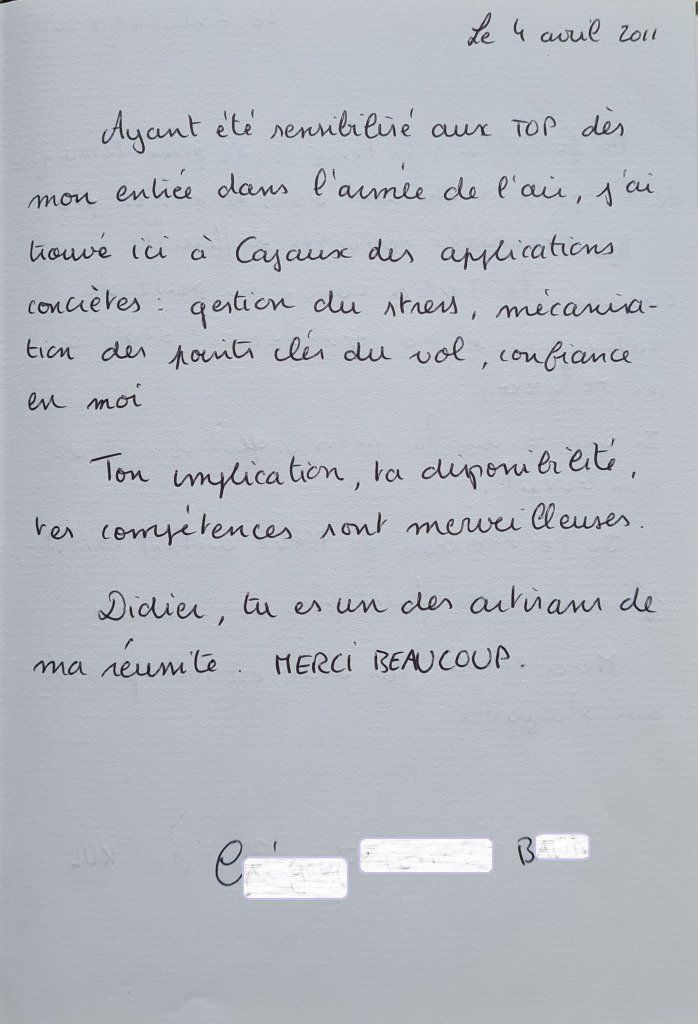 Le 4 avril 2011
Ayant été sensibilisé aux TOP dès
mon entrée dans l'armée de l'air, j'ai
trouvé ici à Cazaux des applications
concrètes : gestion du stress, mécanisa-
tion des points clés du vol, confiance
en moi
Ton implication, ta disponibilité,
tes compétences sont merveilleuses.
Didier, tu es un des artisans de
ma réussite. MERCI BEAUCOUP.
B